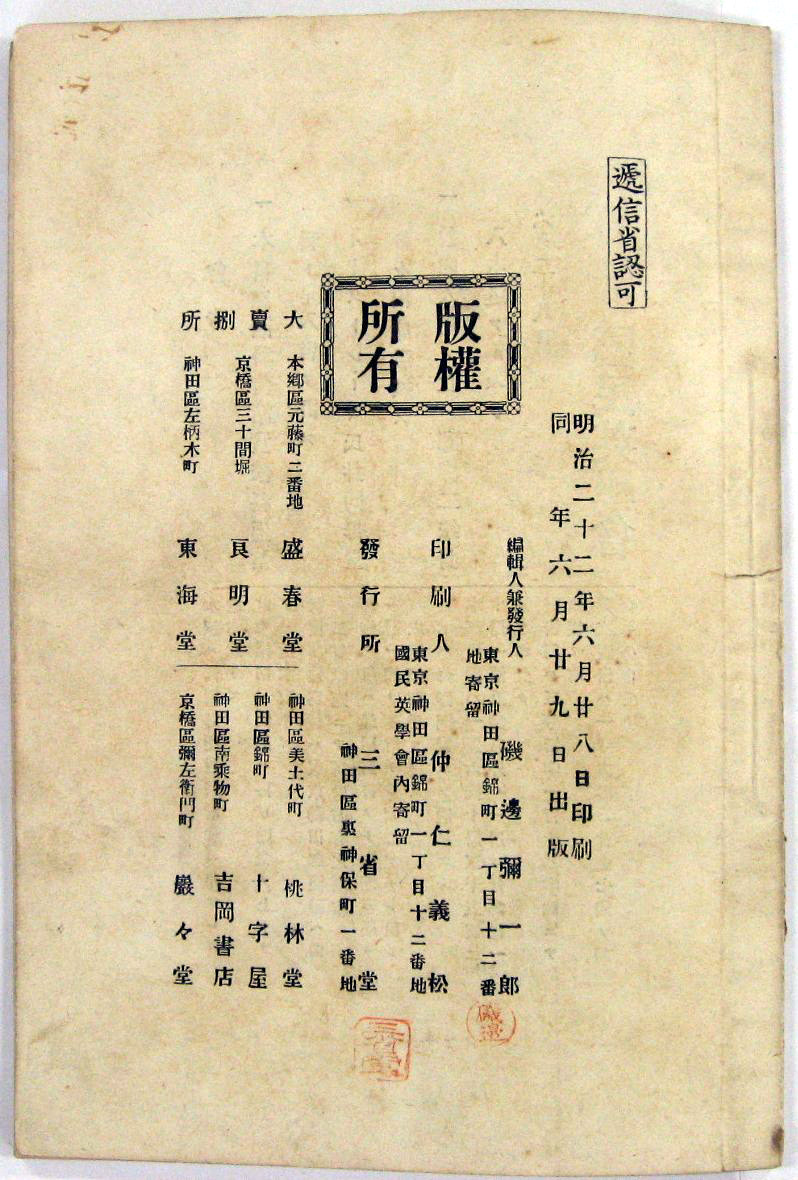 遞信省認可
明治二十二年六月廿八日印刷
同年六月廿九日出版
版權
所有
編輯人兼發行人 磯邊彌一郎
東京神田區錦町一丁目十二番
地寄留
印刷人 仲仁義松
東京神田區錦町一丁目十二番地
國民英學會內寄留
發行所 三省堂
神田區裏神保町一番地
大賣捌所
本鄉區元藤町二番地 盛春堂
京橋區三十間堀 良明堂
神田區左柄木町 東海堂
神田區美土代町 桃林堂
神田區錦町 十字屋
神田區南乘物町 吉岡書店
京橋區彌左衛門町 巖々堂
磯邊